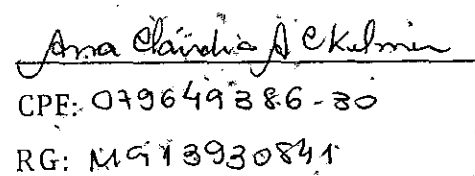 Ana Cláudia A Ckelmin
CPF: 079649386-30
RG: MG13930841